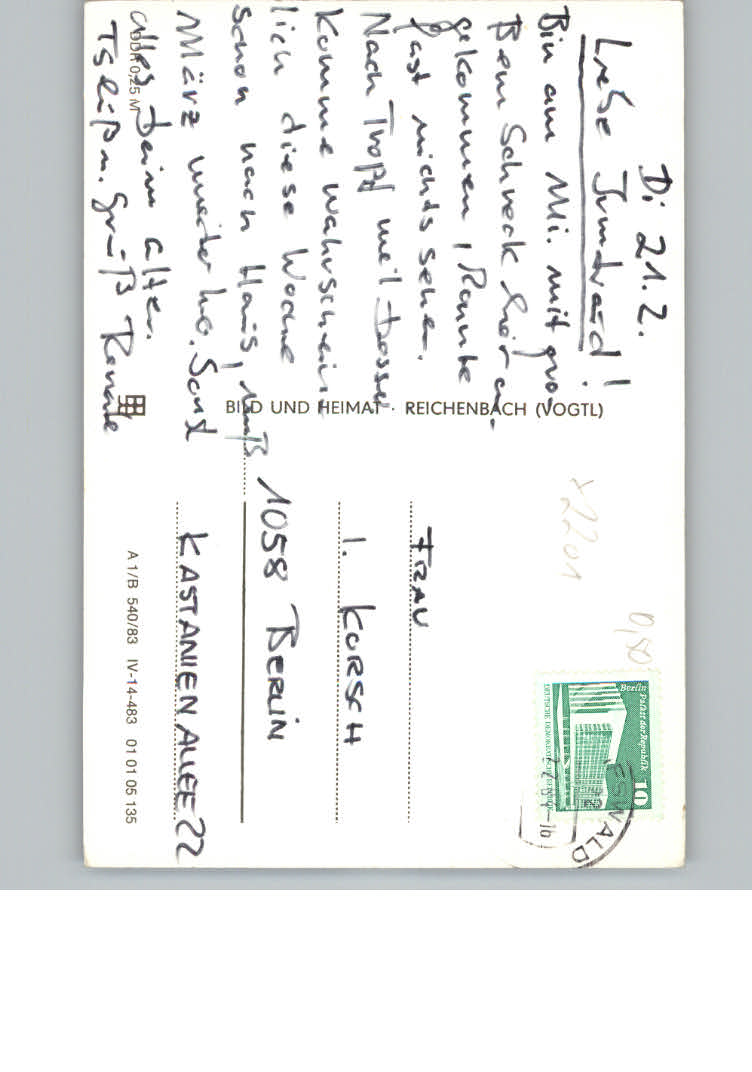 Di 21.2.
Liebe Irmtraud!
Bin am Mi. mit gro-
ßem Schreck hier an-
gekommen, konnte
fast nichts sehen.
Nach Tropf weil besser
Komme wahrschein
lich diese Woche
schon nach Haus, muß
März weiter
Sonst
alles beim alten.
Tschüß u. Gruß Renate
DDR 0,25 M
BILD UND HEIMAT · REICHENBACH (VOGTL)
A 1/B 540/83 IV-14-483 01 01 05 135
FRAU
I. KORSCH
1058 BERLIN
KASTANIENALLEE 22
x2201
0,80
Berlin Palast der Republik
10
DEUTSCHE DEMOKRATISCHE REPUBLIK
ESWALD